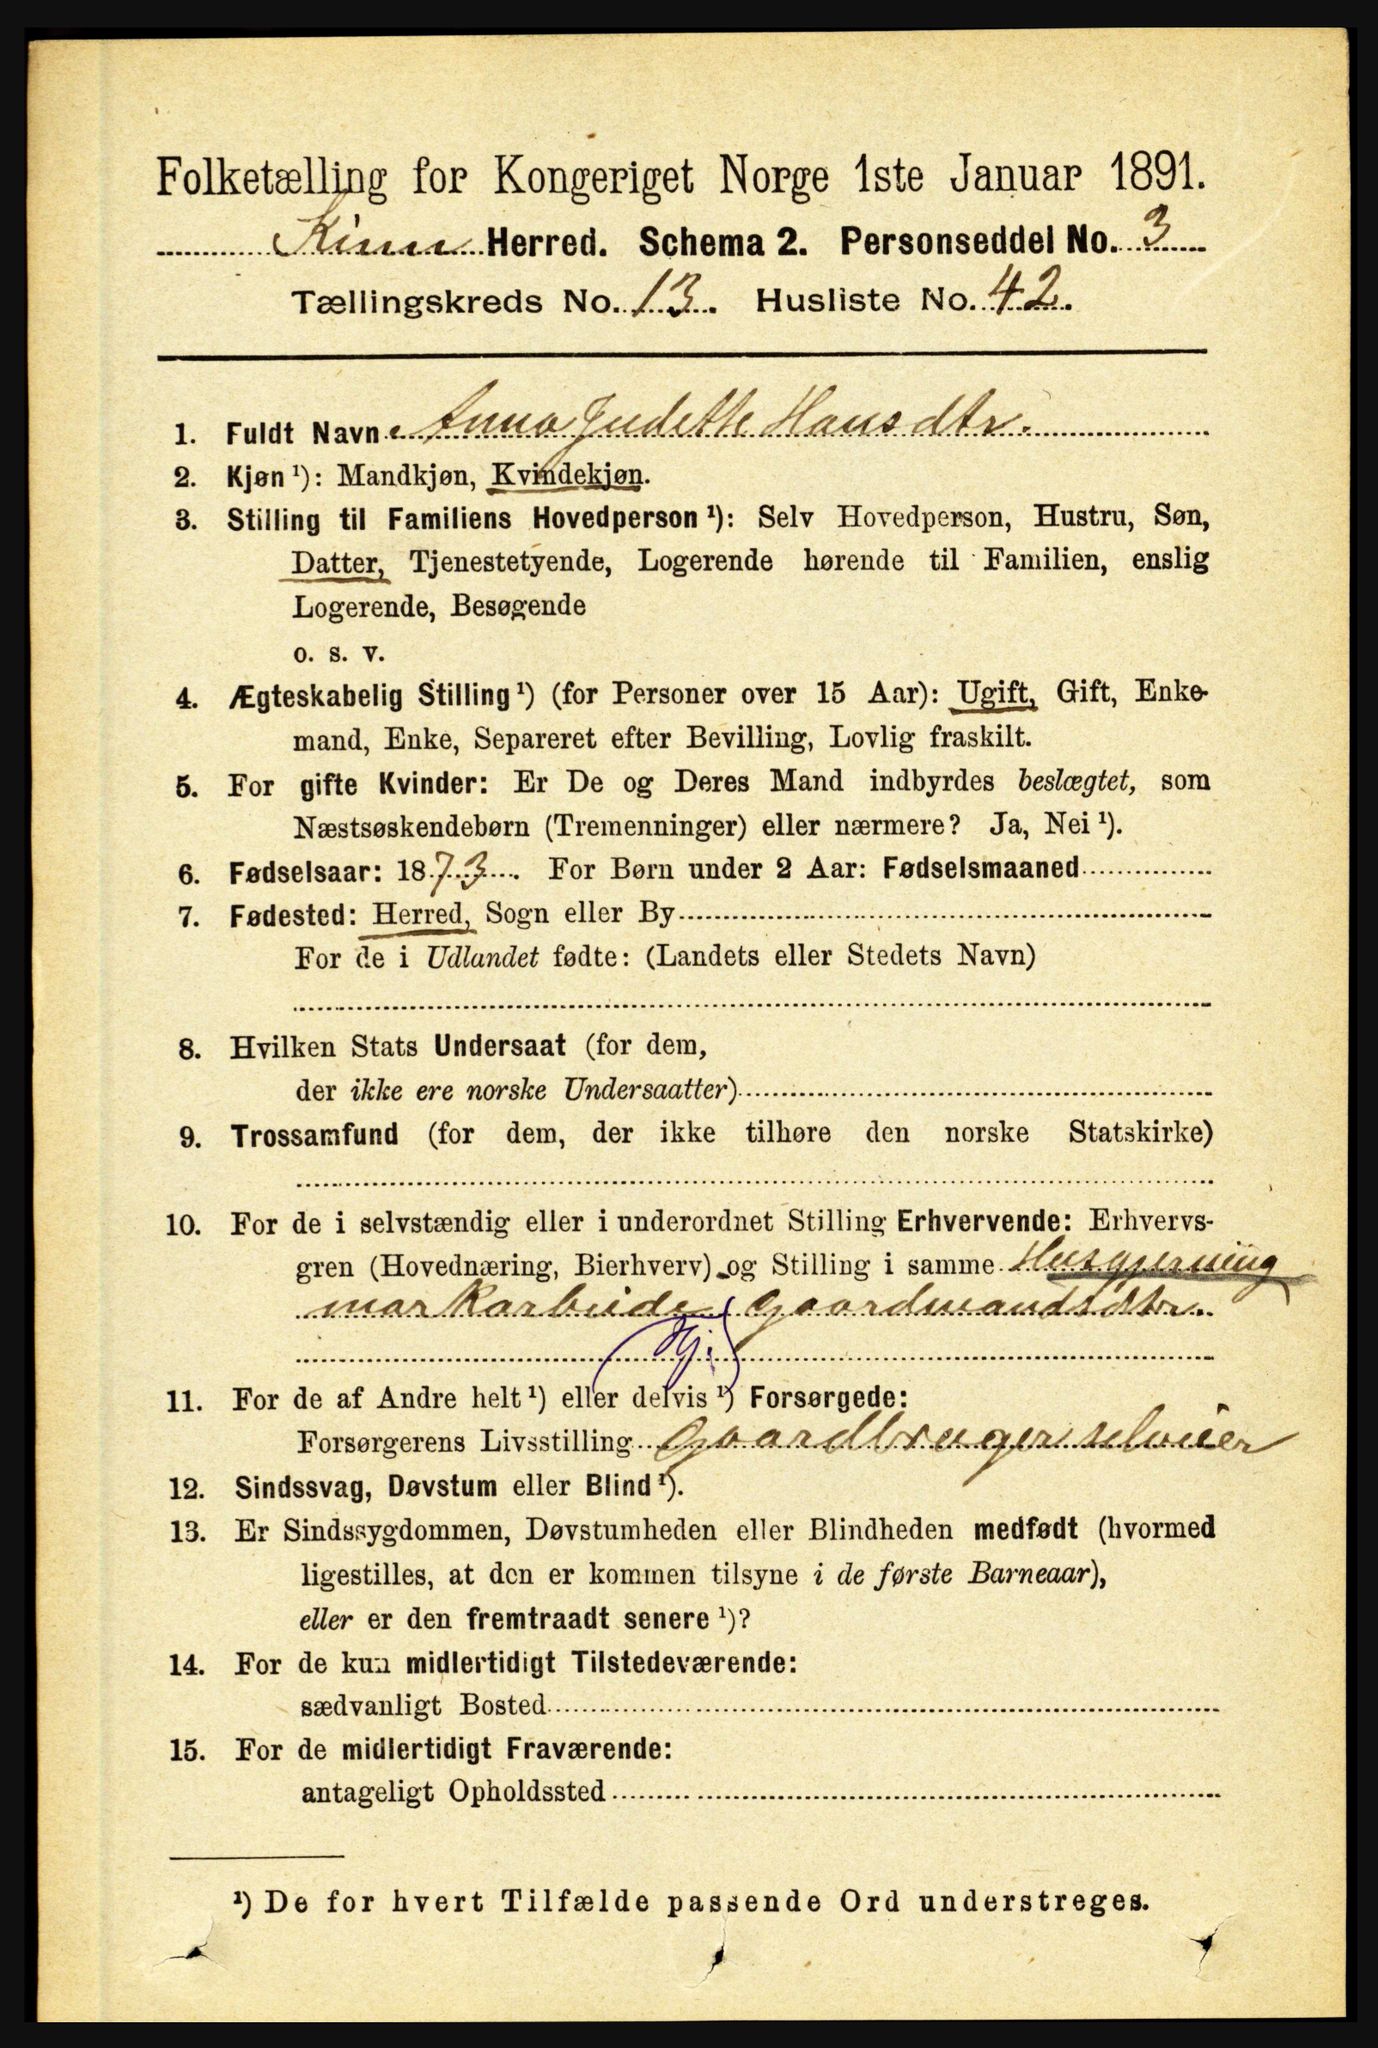 Folketælling for Kongeriget Norge 1ste Januar 1891.
Kinn Herred. Schema 2. Personseddel No. 3
Tællingskreds No. 13. Husliste No. 42.
1. Fuldt Navn Anna Judette Hansdtr.
2. Kjøn ¹): Mandkjøn, Kvindekjøn.
3. Stilling til Familiens Hovedperson ¹): Selv Hovedperson, Hustru, Søn,
Datter, Tjenestetyende, Logerende hørende til Familien, enslig
Logerende, Besøgende
o. s. v.
4. Ægteskabelig Stilling ¹) (for Personer over 15 Aar): Ugift, Gift, Enke-
mand, Enke, Separeret efter Bevilling, Lovlig fraskilt.
5. For gifte Kvinder: Er De og Deres Mand indbyrdes beslægtet, som
Næstsøskendebørn (Tremenninger) eller nærmere? Ja, Nei ¹).
6. Fødselsaar: 1873. For Børn under 2 Aar: Fødselsmaaned
7. Fødested: Herred, Sogn eller By
For de i Udlandet fødte: (Landets eller Stedets Navn)
8. Hvilken Stats Undersaat (for dem,
der ikke ere norske Undersaatter)
9. Trossamfund (for dem, der ikke tilhøre den norske Statskirke)
10. For de i selvstændig eller i underordnet Stilling Erhvervende: Erhvervs-
gren (Hovednæring, Bierhverv) og Stilling i samme Husgjerning
markarbeide gaardmandsdtr.
Hj.
11. For de af Andre helt ¹) eller delvis ¹) Forsørgede:
Forsørgerens Livsstilling Gaardbruger selveier
12. Sindssvag, Døvstum eller Blind ¹).
13. Er Sindssygdommen, Døvstumheden eller Blindheden medfødt (hvormed
ligestilles, at den er kommen tilsyne i de første Barneaar),
eller er den fremtraadt senere ¹)?
14. For de kun midlertidigt Tilstedeværende:
sædvanligt Bosted
15. For de midlertidigt Fraværende:
antageligt Opholdssted
¹) De for hvert Tilfælde passende Ord understreges.